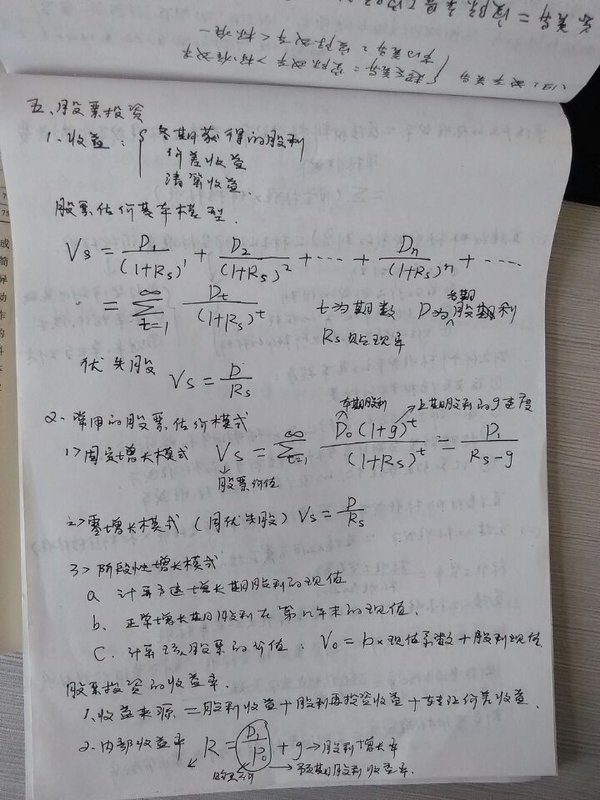 五、股票投资
1、收益：{ 各期获得的股利
价差收益
清算收益.
股票估价基本模型.
Vs = D₁/(1+Rs)¹ + D₂/(1+Rs)² + … + Dn/(1+Rs)ⁿ + …
= ∑(t=1→∞) Dt/(1+Rs)^t  t为期数  D为股利
Rs贴现率
优先股 Vs = D/Rs
2、常用的股票估价模式
本期股利 上期股利的g速度
1>固定增长模式 Vs = ∑(t=1→∞) D₀(1+g)^t/(1+Rs)^t = D₁/(Rs-g)
股票价值
2>零增长模式（同优先股）Vs = D/Rs
3>阶段性增长模式
a 计算高速增长期股利的现值
b. 正常增长期股利在第n年末的现值.
C. 计算该股票的价值：V₀ = b×现值系数+股利现值
股票投资的收益率.
1.收益来源 = 股利收益+股利再投资收益+转让价差收益.
2.内部收益率 R = D₁/P₀ + g→股利增长率
预期股利收益率.